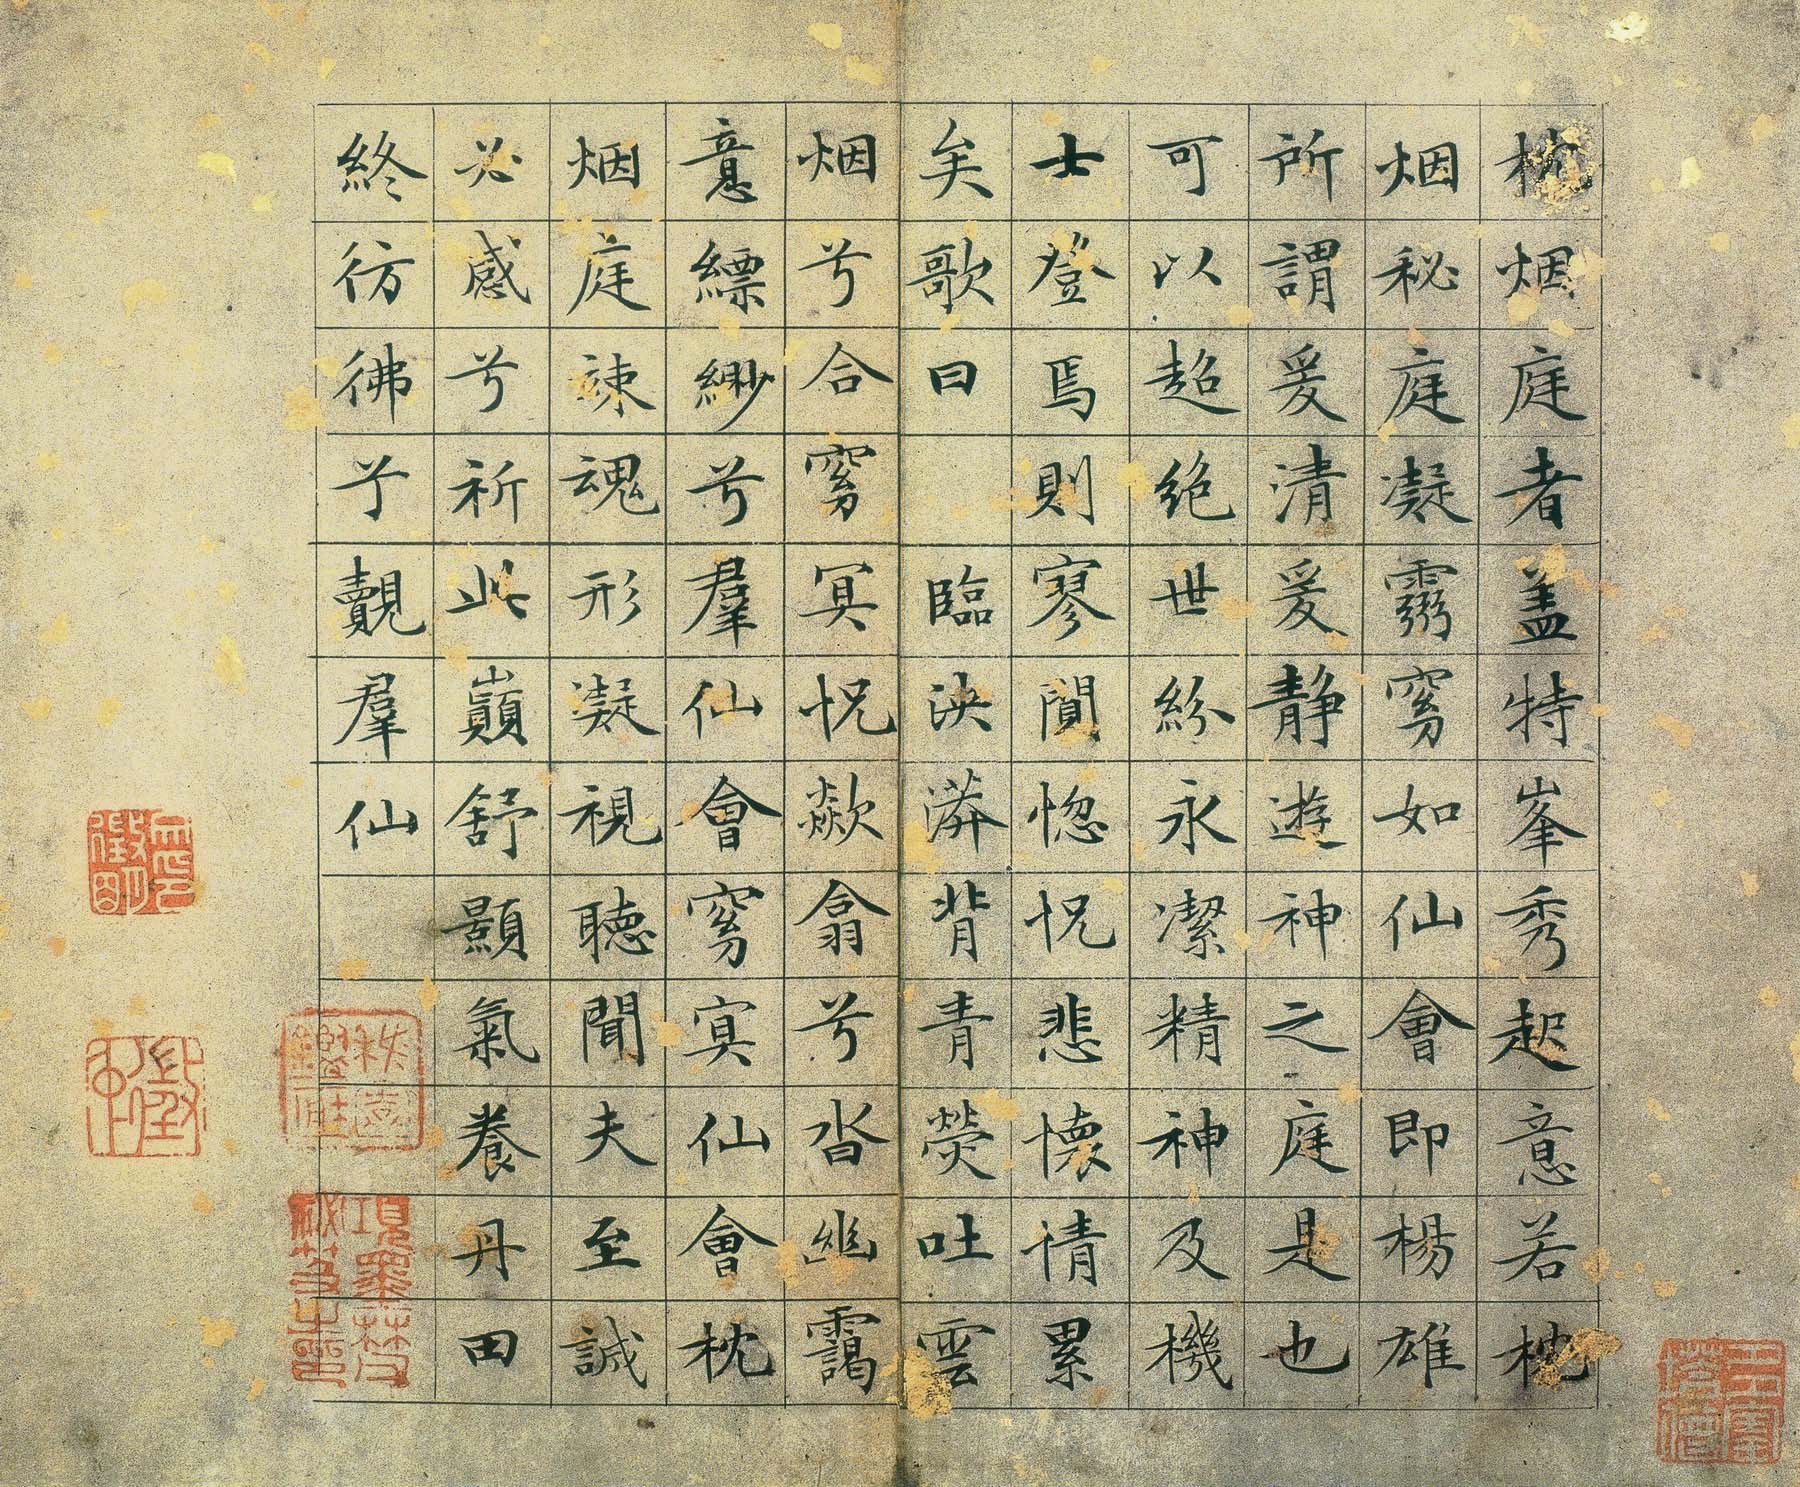 枕烟庭者盖特峯秀起意若枕
烟秘庭凝靈窈如仙會即楊雄
所謂爰清爰静遊神之庭是也
可以超絶世紛永潔精神及機
士登焉則寥閴惚怳悲懷情累
矣歌曰　臨泱漭背青熒吐雲
烟兮合窈冥怳歘翕兮沓幽靄
意縹緲兮羣仙會窈冥仙會枕
烟庭竦魂形凝視聽聞夫至誠
必感兮祈此巔舒顥氣養丹田
終彷彿兮覿羣仙
項墨林父
秘笈之印